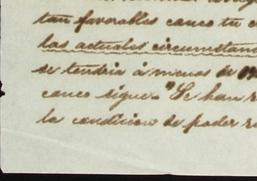 tan favorables como tu c
las actuales circunstan
se tendria á menos de
como sigue. "Se han r
la condicion de poder re